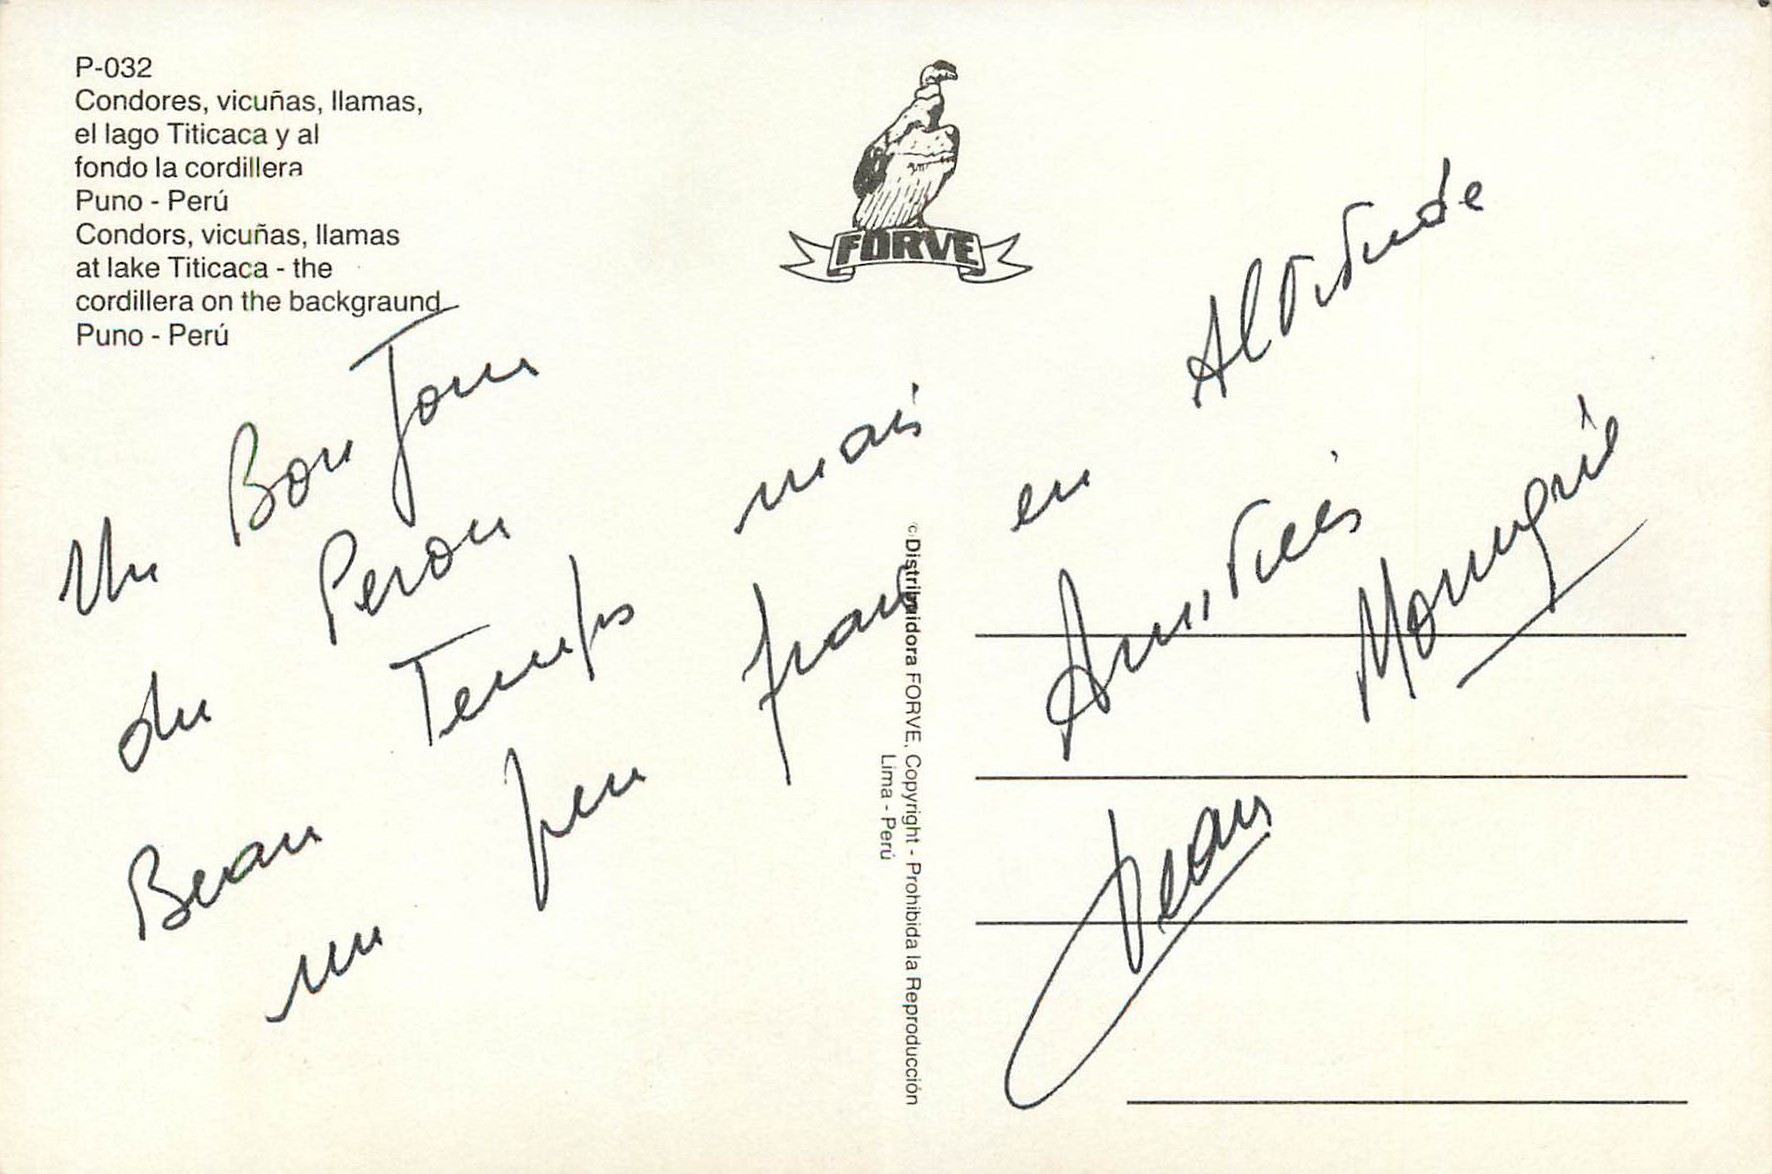 P-032
Condores, vicuñas, llamas,
el lago Titicaca y al
fondo la cordillera
Puno - Perú
Condors, vicuñas, llamas
at lake Titicaca - the
cordillera on the backgraund
Puno - Perú
FORVE
Un Bon Jour
du Perou
Beau Temps mais en Altitude
un peu frais
Amitiés
Jean
© Distribuidora FORVE, Copyright - Prohibida la Reproducción
Lima - Perú